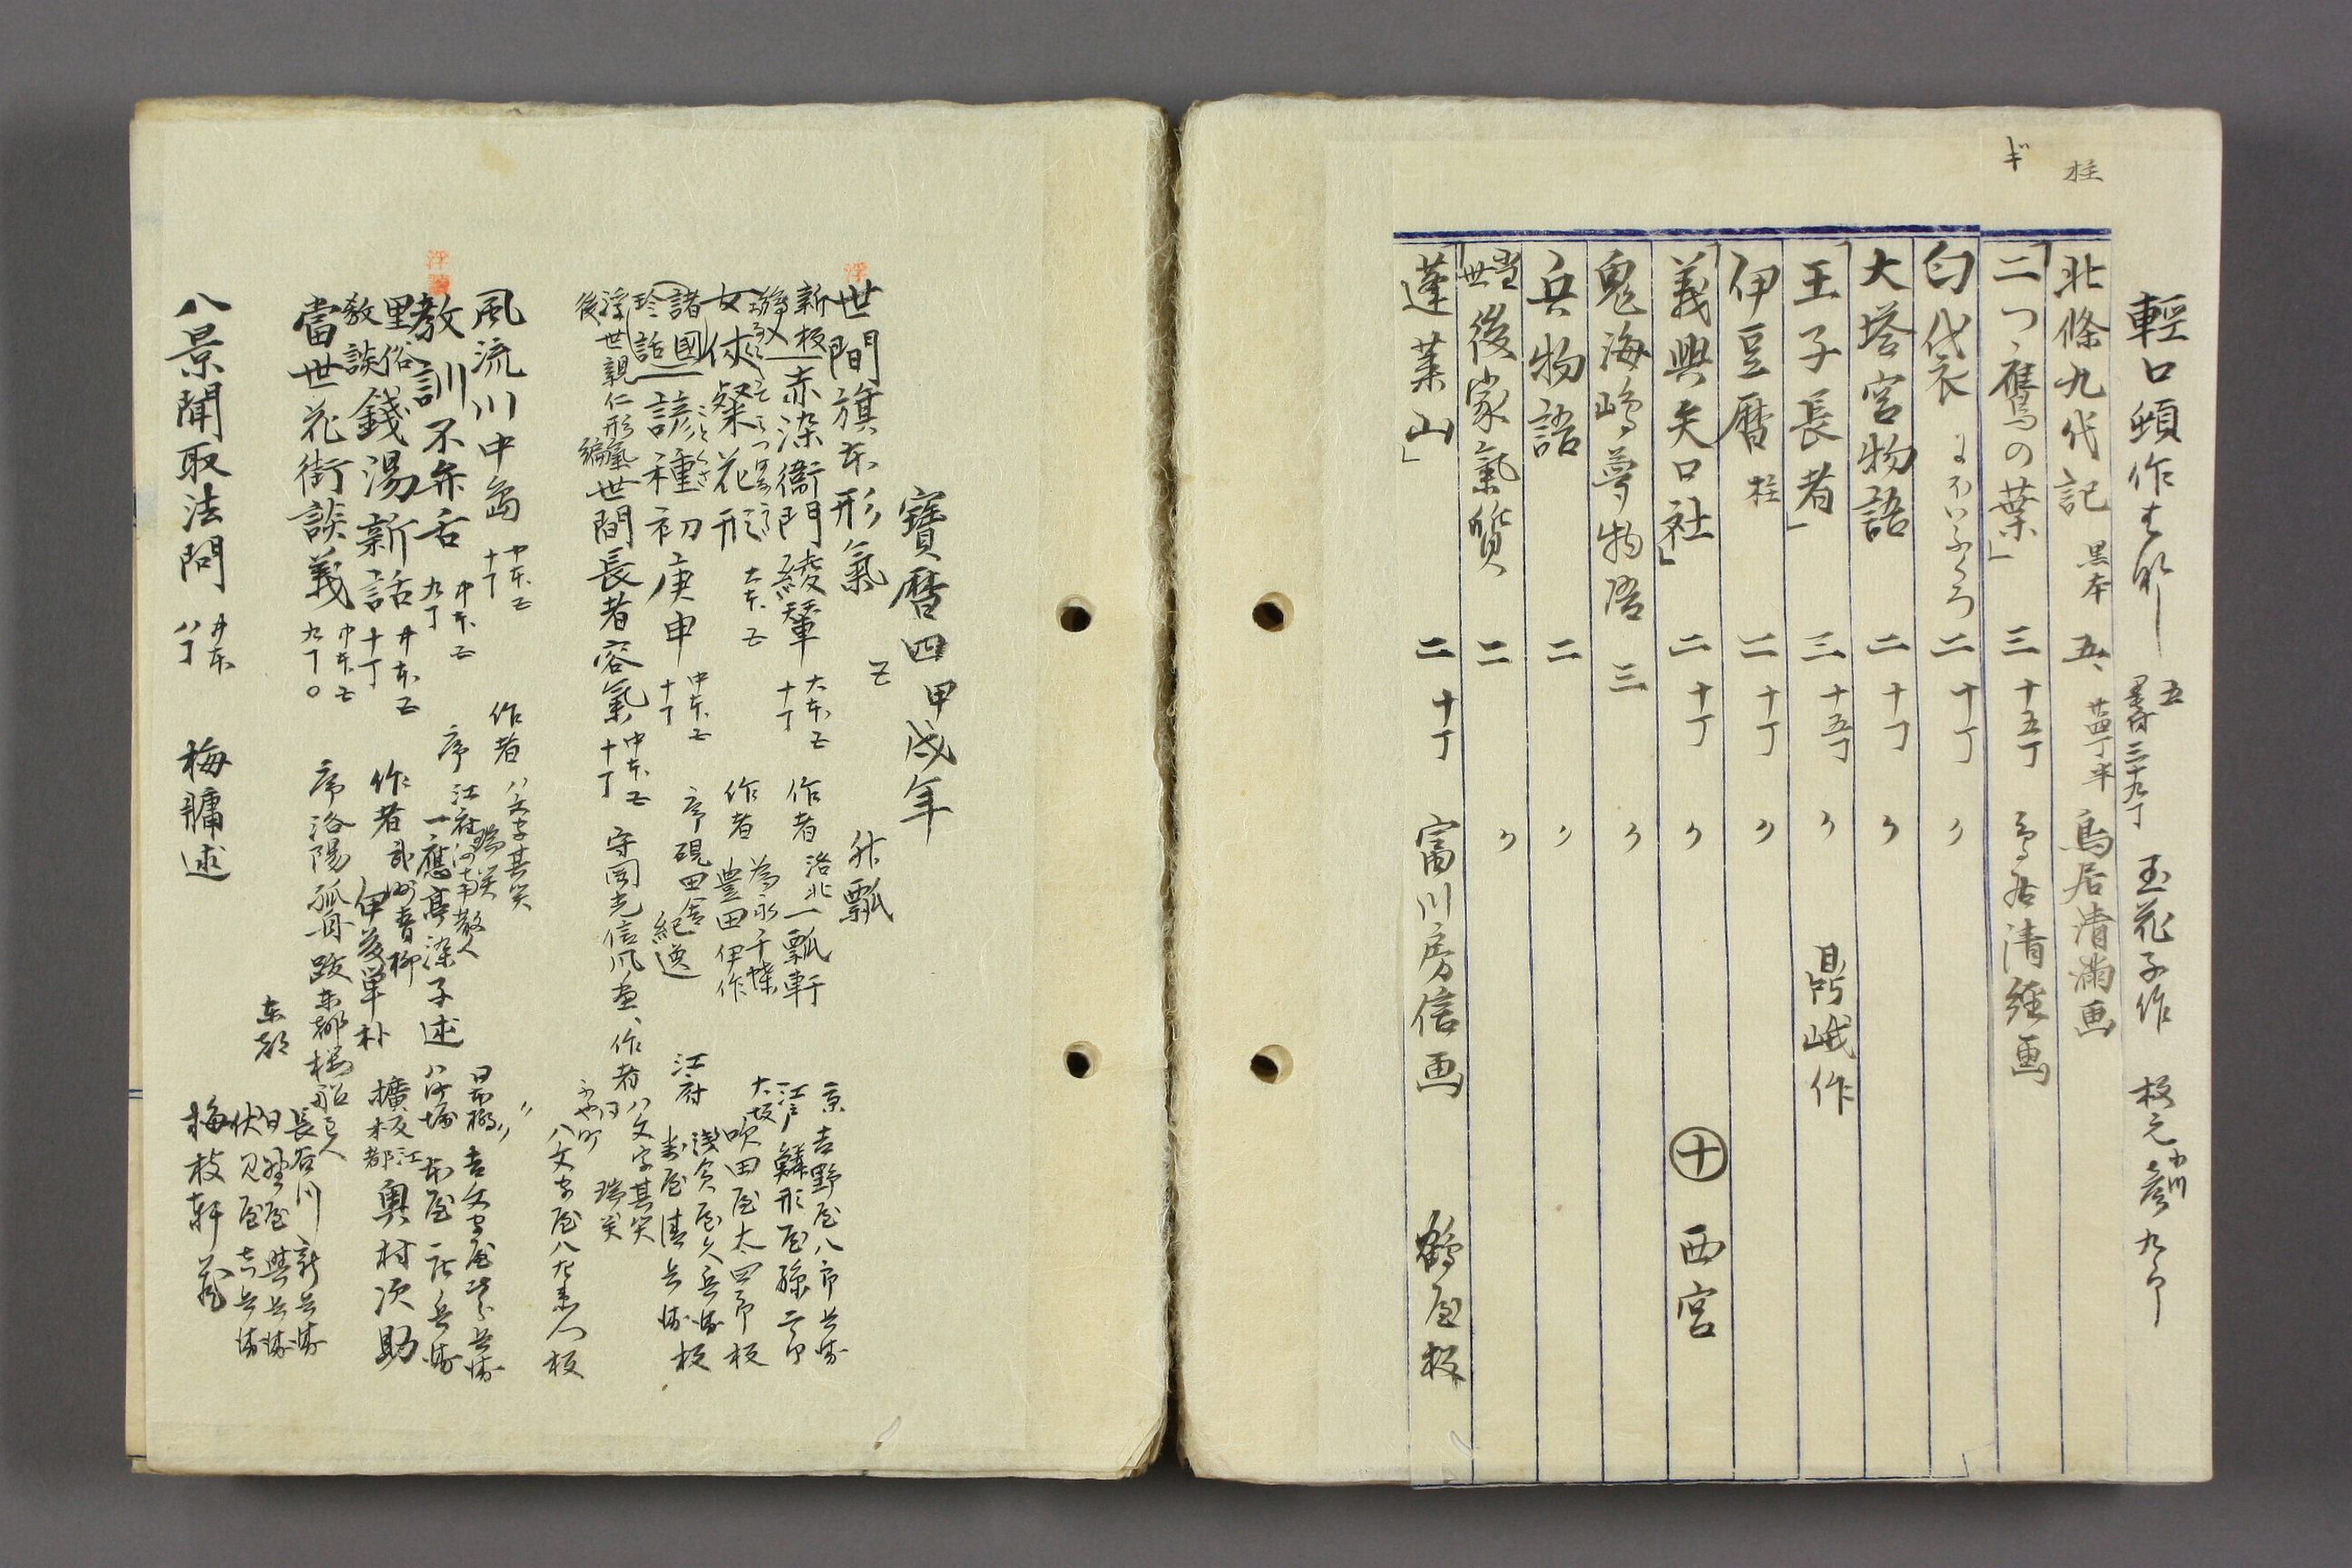 輕口頓作
五
三十九丁
玉花子作
板元
小川
彦九郎
柱
北條九代記 黒本 五
鳥居清満画
ギ
二つ鷹の葉 三 十五丁
鳥居清経画
匂袋 にほいふくろ 二 十丁 〃
大塔宮物語 二 十丁 〃
王子長者 三 十五丁 〃 鼎峨作
伊豆暦 柱 二 十丁 〃
義興矢口社 二 十丁 〃 ㊉ 西宮
鬼海嶋夢物語 三 〃
兵物語 二 〃
當世 後家氣質 二 〃
蓬莱山 二 十丁 富川房信画 鶴屋板
寶暦四甲戌年
浮
世間旗本形氣 五
新板 赤染衛門綾輦 大本 五 十丁
作者 洛北一瓢軒
京 吉野屋八郎兵衛
江戸 鱗形屋孫二郎
女侠粲花形 大本 五
作者 為永千蝶
豊田伊作
大坂 吹田屋太四郎板
諸國珍話 諺種初庚申 中本 五 十丁
序 硯田舎 紀逸
江府
浅倉屋久兵衛
浮世親仁形氣後編 世間長者容氣 中本 五 十丁
作者 八文字其笑
瑞笑
八文字屋八左衛門板
風流川中島 中本 五 十丁
作者 八文字其笑
瑞笑
教訓不弁舌 中本 五 九丁
序 江府河南散人
一應亭染子述
里俗教談 錢湯新話 十丁
作者 武州青柳
伊藤単朴
江都 奥村次助
當世花街談義 中本 五 九丁
序 洛陽孤舟 跋 東都
東都
長谷川新兵衛
日野屋與兵衛
伏見屋吉兵衛
八景聞取法問 八丁
梅𦨞述
梅枝軒蔵